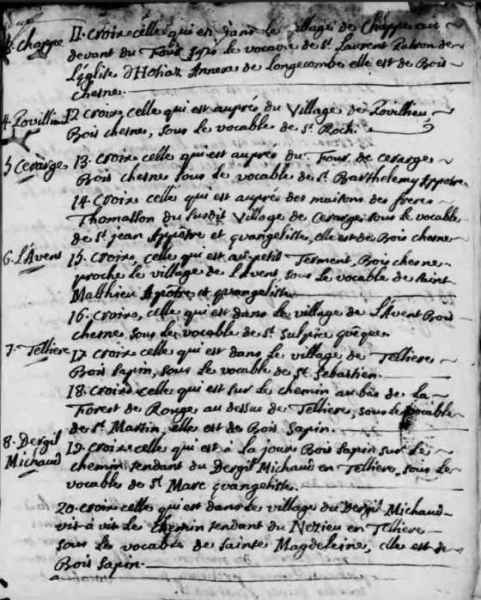 3. Charpe 11. Croix celle qui est dans le village de Chappe au
devant du Four, sous le vocable de St. Laurent Patron de
l'Eglise d'Hotiaz Annexe de Longecombe elle est de Bois
chesne.
4. Lovillieu 12 Croix celle qui est auprés du Village de Lovillieu
Bois chesne, sous le vocable de St. Roch.
5 Cerarge 13. Croix celle qui est auprés du Four de cerarge
Bois chesne sous le vocable de St. Barthelemy Appotre
14. Croix celle qui est auprés des maisons des freres
Thomasson du susdit village de Cerarge sous le vocable
de St. jean Appotre et Evangeliste, elle est de Bois chesne
6. L'Avent 15. Croix, celle qui est au petit Bois chesne
proche le village de l'Avent sous le vocable de saint
Matthieu Apôtre et Evangeliste.
16. Croix, celle qui est dans le village de l'Avent Bois
chesne sous le vocable de St. Sulpice
7. Telliere 17 Croix celle qui est dans le village de Telliere
Bois sapin, sous le vocable de St. Sebastien.
18. Croix celle qui est sur le chemin au bas de La
Forest de Rouge au dessus de Telliere, sous le vocable
de St. Martin, elle est de Bois Sapin.
8. Dergil 19. Croix celle qui est à la Bois sapin sur Le
Michaud chemin tendant du Dergil Michaud en Telliere, sous Le
vocable de St. Marc Evangeliste.
20. Croix celle qui est dans le village du Dergil Michaud
vit à vit Le Chemin tendant du Nezieu en Telliere
sous le vocable de sainte Magdeleine, elle est de
Bois sapin.